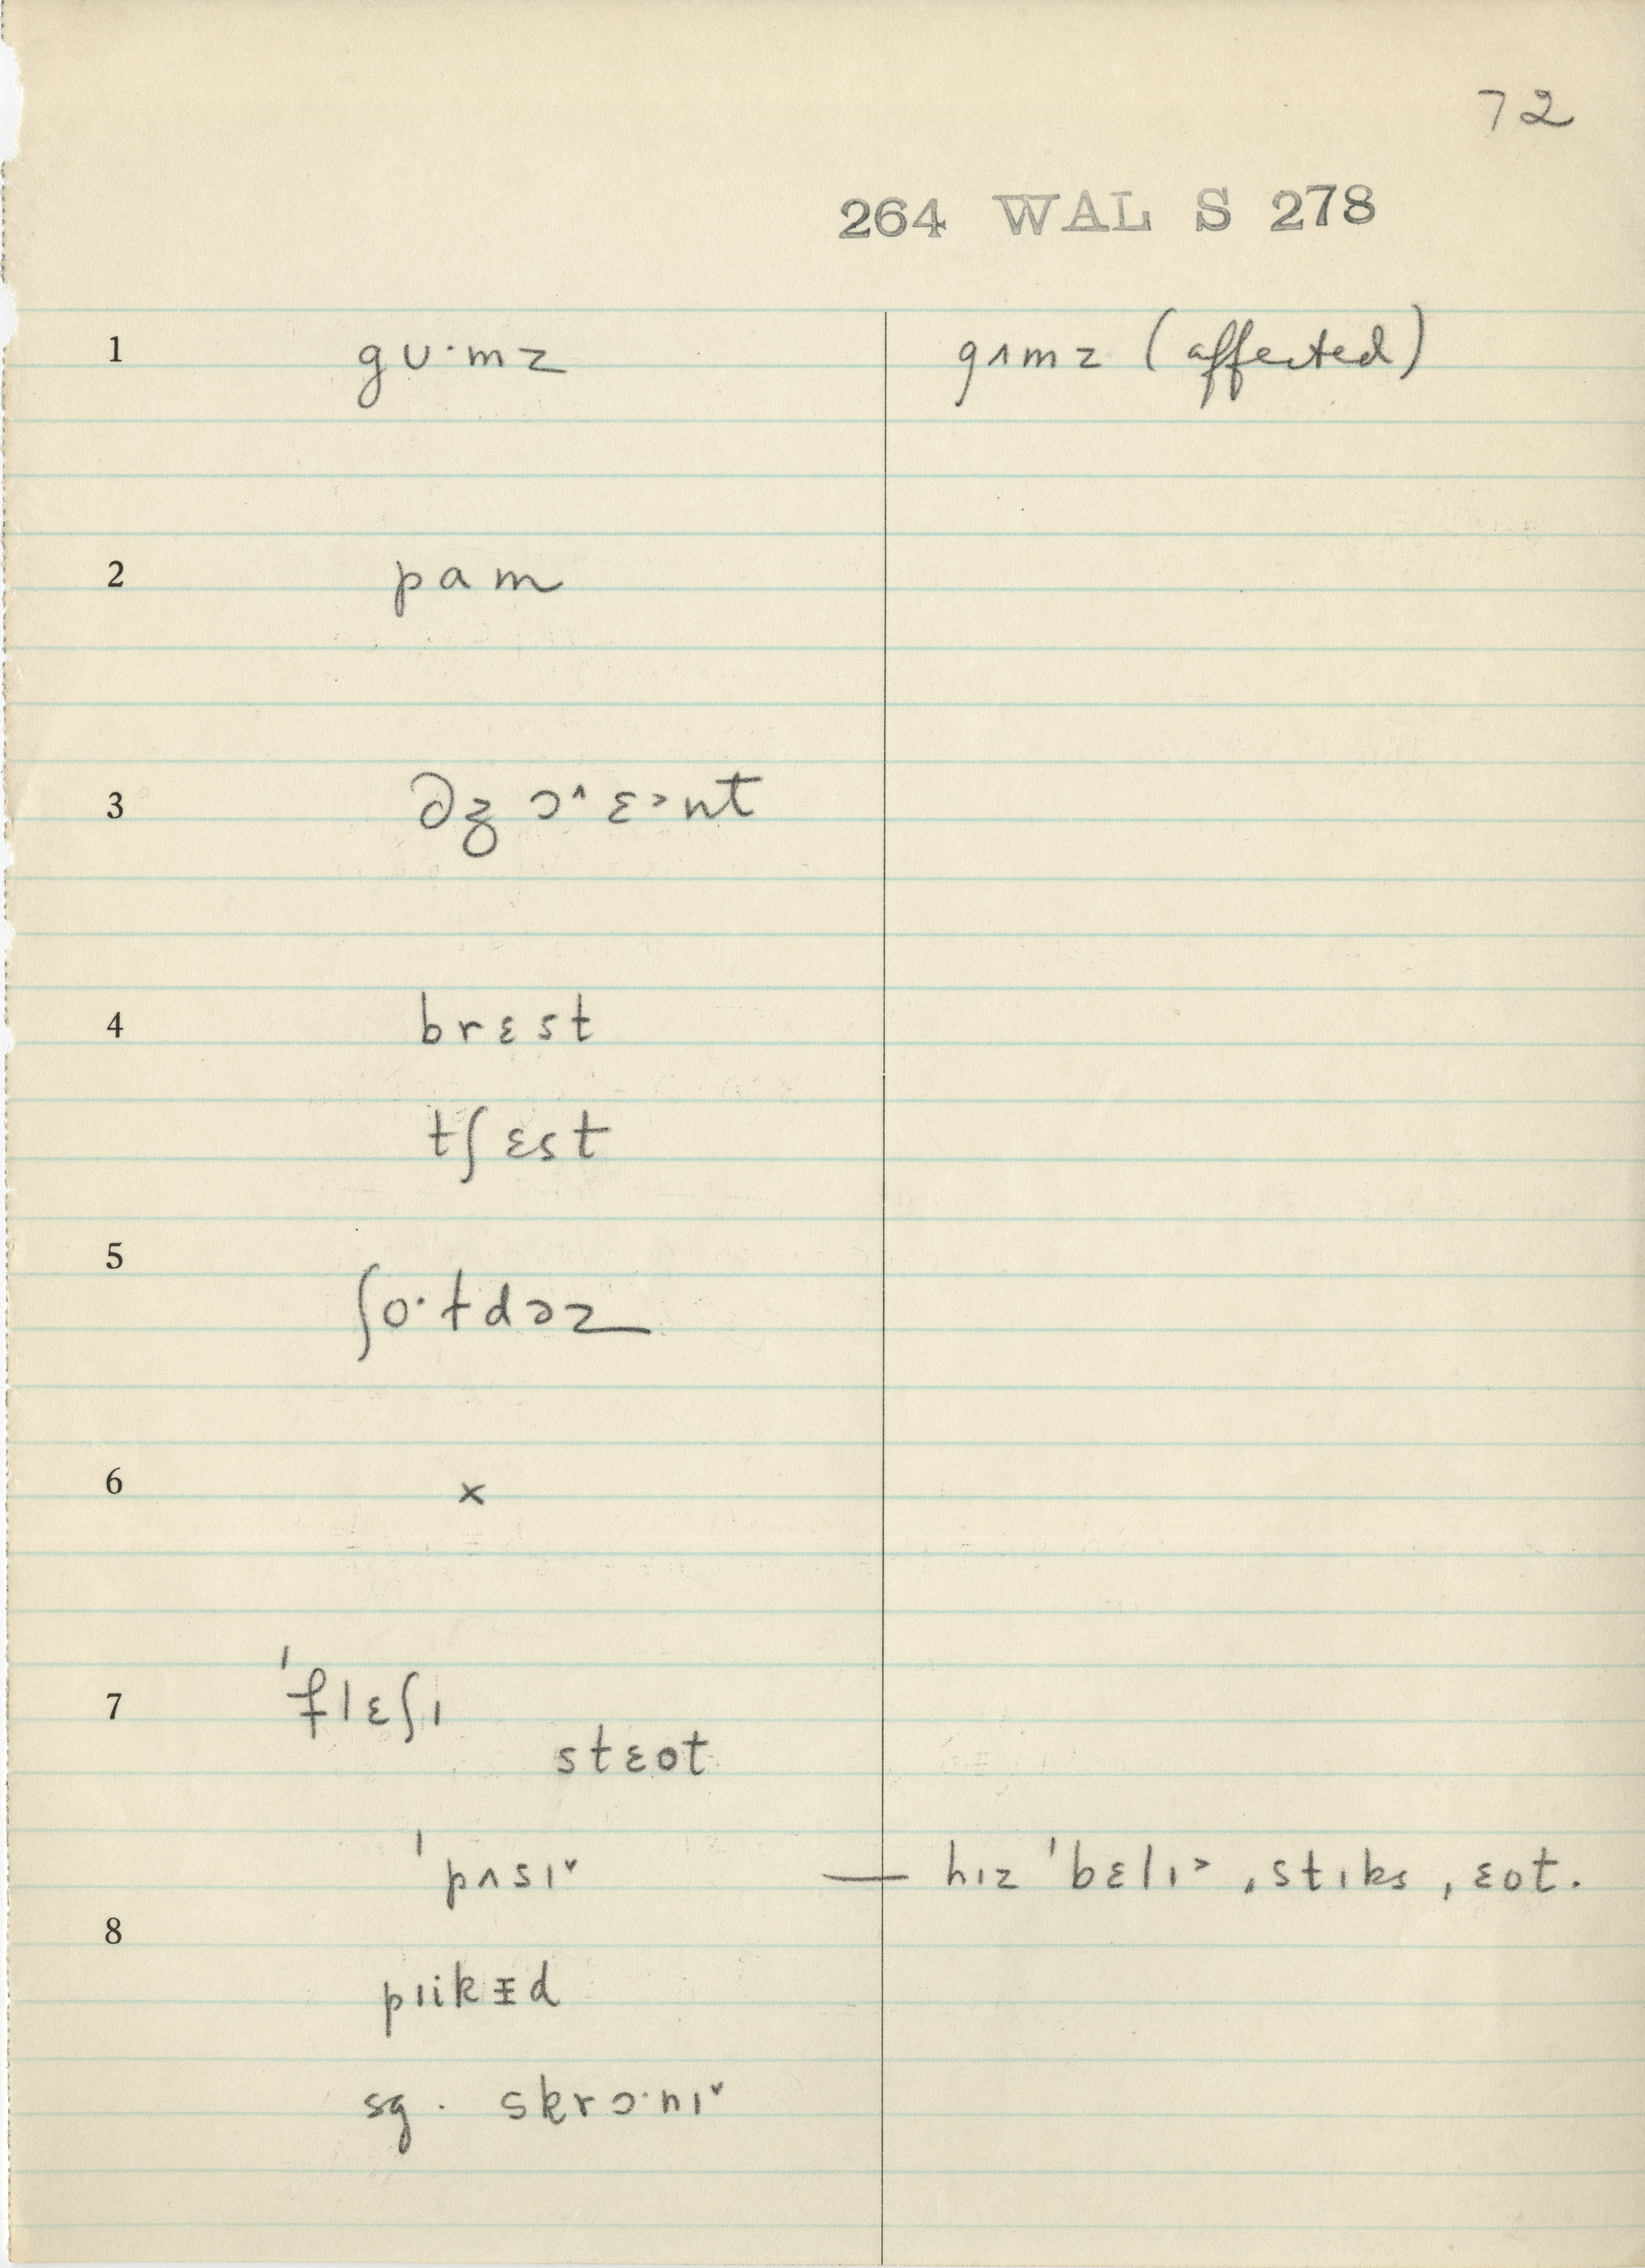 72
264 WAL S 278
1 gʊ·mz gʌmz (affected)
2 pam
3 ɔ˄ ɛ˃nt
4 brɛst
tʃɛst
5 ʃo·ɫdəz
6 x
7 ˈflɛʃɪ
stɛot
ˈpʌsɪ˅ — hɪz ˈbɛlɪ˃ , stɪks , ɛot.
8
sg. skrɔ·nɪ˅